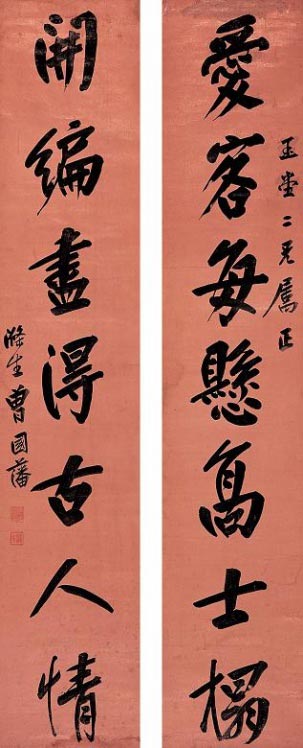 愛客每懸高士榻
玉堂二兄屬正
開編盡得古人情
滌生曾國藩